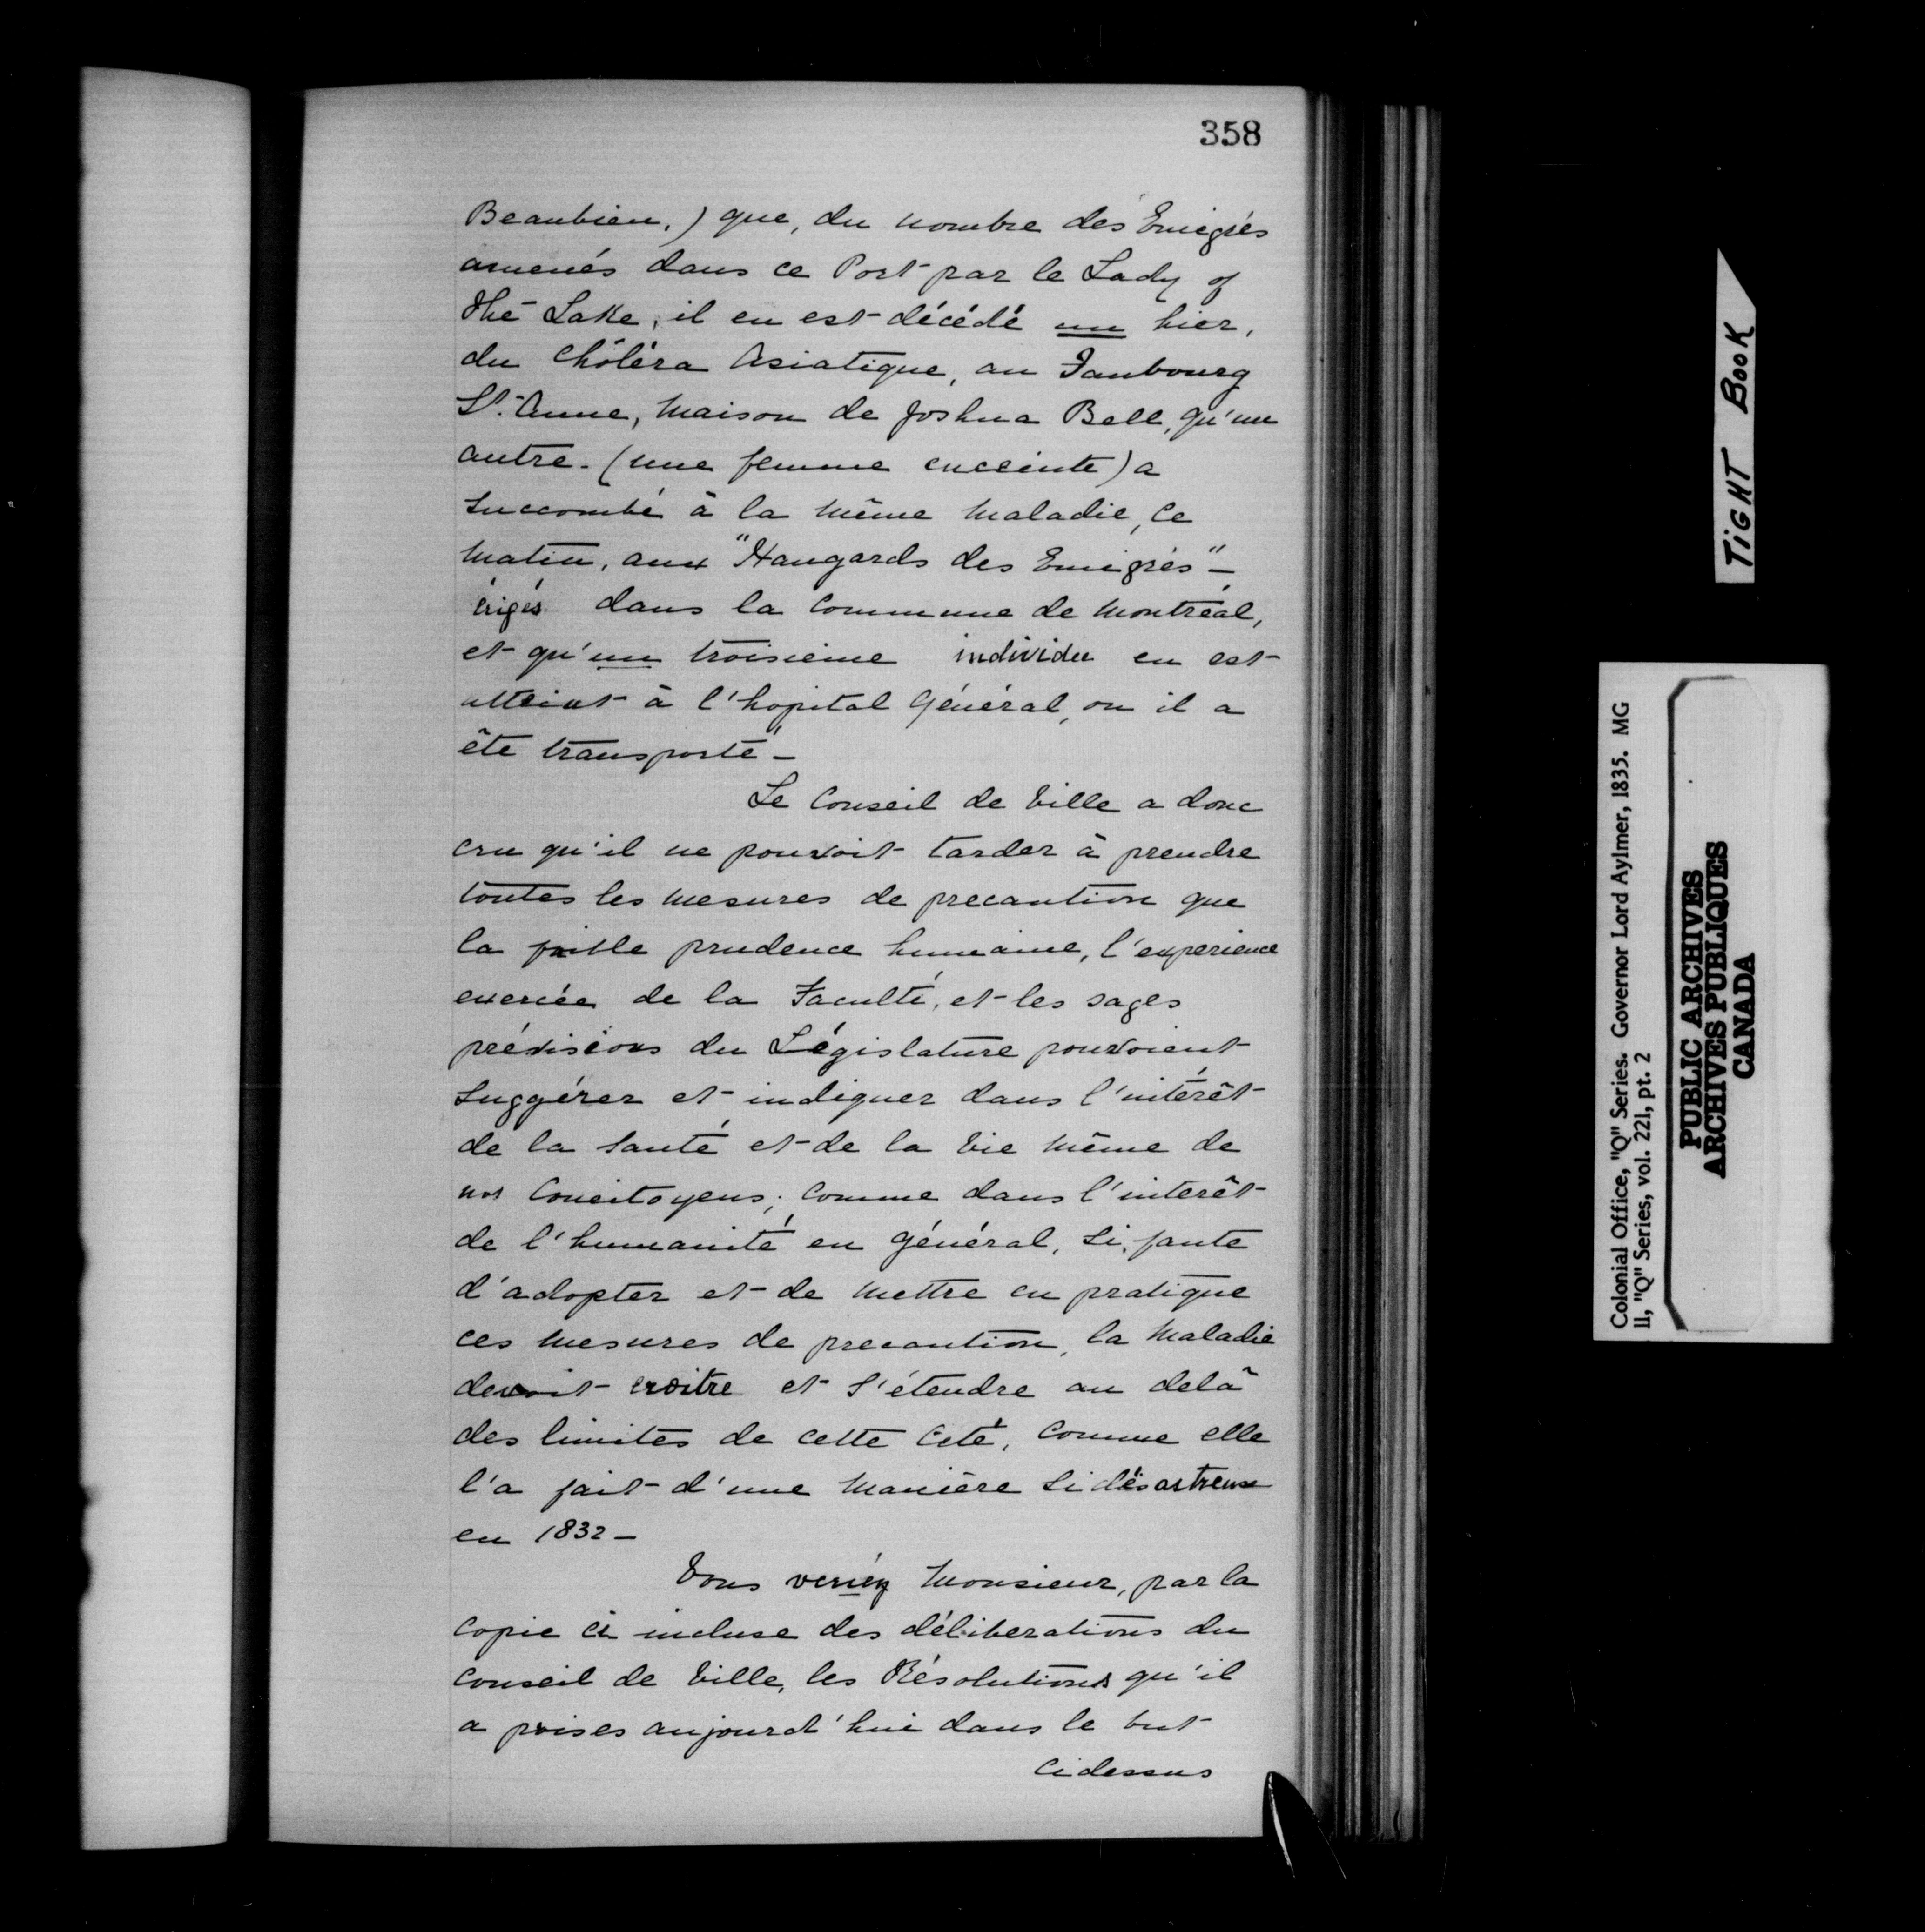 358
Beaubien,) que, du nombre des Emigrés
amenés dans ce Port par le Lady of
the Lake, il en est décédé un hier,
du Choléra Asiatique, au Faubourg
St. Anne, Maison de Joshua Bell, qu'un
autre - (une femme enceinte) a
succombé à la même maladie, ce
matin, aux "Hangards des Emigrés" -
érigés dans la Commune de Montréal,
et qu'un troisième individu en est
atteint à l'hopital Général, ou il a
été transporté -
Le Conseil de Ville a donc
cru qu'il ne pouvoit tarder à prendre
toutes les mesures de precaution que
la faible prudence humaine, l'experience
exercée de la Faculté, et les sages
prévisions du Législature pouvoient
suggérer et indiquer dans l'intérêt
de la santé et de la Vie même de
nos Concitoyens; comme dans l'interêt
de l'humanité en général, si, faute
d'adopter et de mettre en pratique
ces mesures de precaution, la maladie
devoit croitre et s'étendre au delà
des limites de cette Cité, comme elle
l'a fait d'une manière si désastreuse
en 1832 -
Vous verréz Monsieur, par la
Copie ci incluse des déliberations du
Conseil de Ville, les Résolutions qu'il
a prises aujourd'hui dans le but
Cidessus
TIGHT BOOK
Colonial Office, "Q" Series. Governor Lord Aylmer, 1835. MG
11, "Q" Series, vol. 221, pt. 2
PUBLIC ARCHIVES
ARCHIVES PUBLIQUES
CANADA